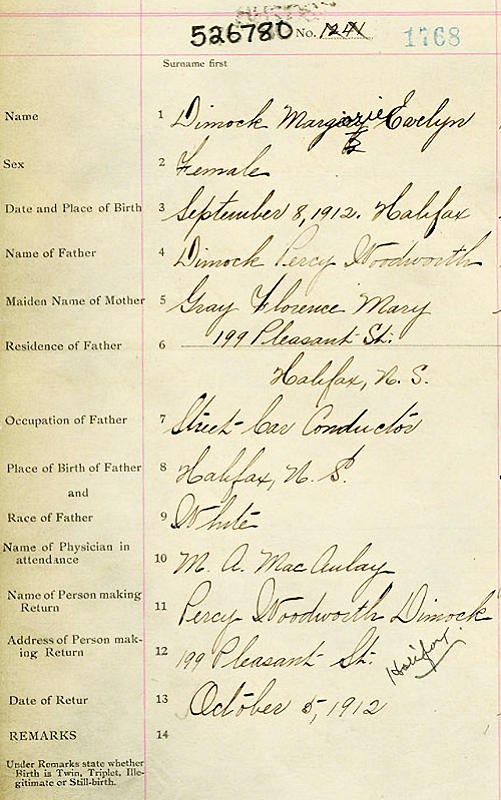 526780 No. 1241 1768
Surname first
Name 1 Dimock Marjorie Evelyn
Sex 2 Female
Date and Place of Birth 3 September 8, 1912. Halifax
Name of Father 4 Dimock Percy Woodworth
Maiden Name of Mother 5 Gray Florence Mary
Residence of Father 6 199 Pleasant St.
Halifax, N. S.
Occupation of Father 7 Street Car Conductor
Place of Birth of Father 8 Halifax, N. S.
and
Race of Father 9 White
Name of Physician in
attendance 10 M. A. MacAulay
Name of Person making
Return 11 Percy Woodworth Dimock
Address of Person mak-
ing Return 12 199 Pleasant St. Halifax
Date of Retur 13 October 5, 1912
REMARKS 14
Under Remarks state whether
Birth is Twin, Triplet, Ille-
gitimate or Still-birth.